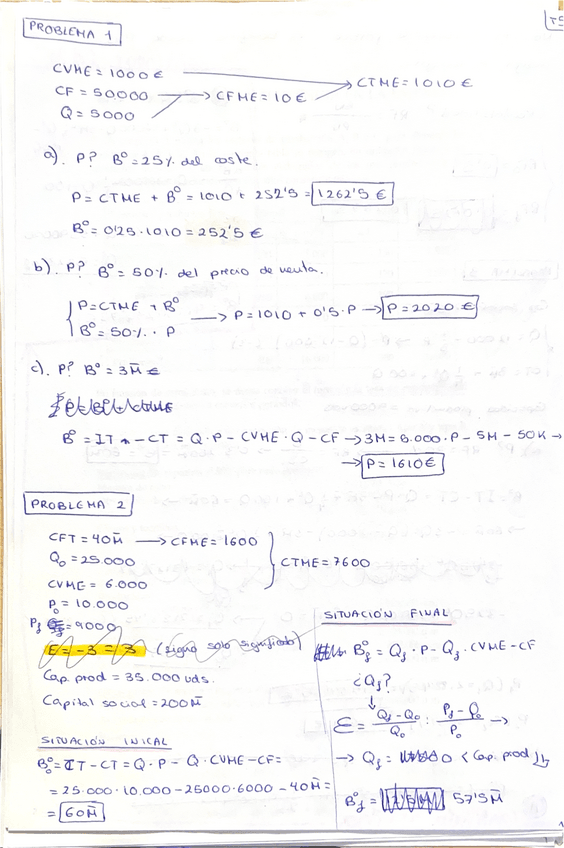 PROBLEMA 1
CVME = 1000 €
CF = 50000 → CFME = 10 € → CTME = 1010 €
Q = 5000
a). P? Bº = 25% del coste.
P = CTME + Bº = 1010 + 252'5 = 1262'5 €
Bº = 0'25 · 1010 = 252'5 €
b). P? Bº = 50% del precio de venta.
P = CTME + Bº
Bº = 50% · P → P = 1010 + 0'5 · P → P = 2020 €
c). P? Bº = 3M €
Bº = IT - CT = Q · P - CVME · Q - CF → 3M = 5.000 · P - 5M - 50K →
→ P = 1610 €
PROBLEMA 2
CFT = 40M → CFME = 1600
Q₀ = 25.000
CVME = 6.000
CTME = 7600
P₀ = 10.000
Pf = 9000
E = -3 = 3 (signo solo significado)
Cap. prod = 35.000 uds.
Capital social = 200M
SITUACIÓN INICAL
B₀º = IT - CT = Q · P - Q · CVME - CF =
= 25.000 · 10.000 - 25000 · 6000 - 40M =
= 60M
SITUACIÓN FINAL
Bfº = Qf · P - Qf · CVME - CF
¿Qf?
↓
E = Qf - Q₀ / Q₀ : Pf - P₀ / P₀ →
→ Qf = < Cap. prod
Bfº = 57'5M